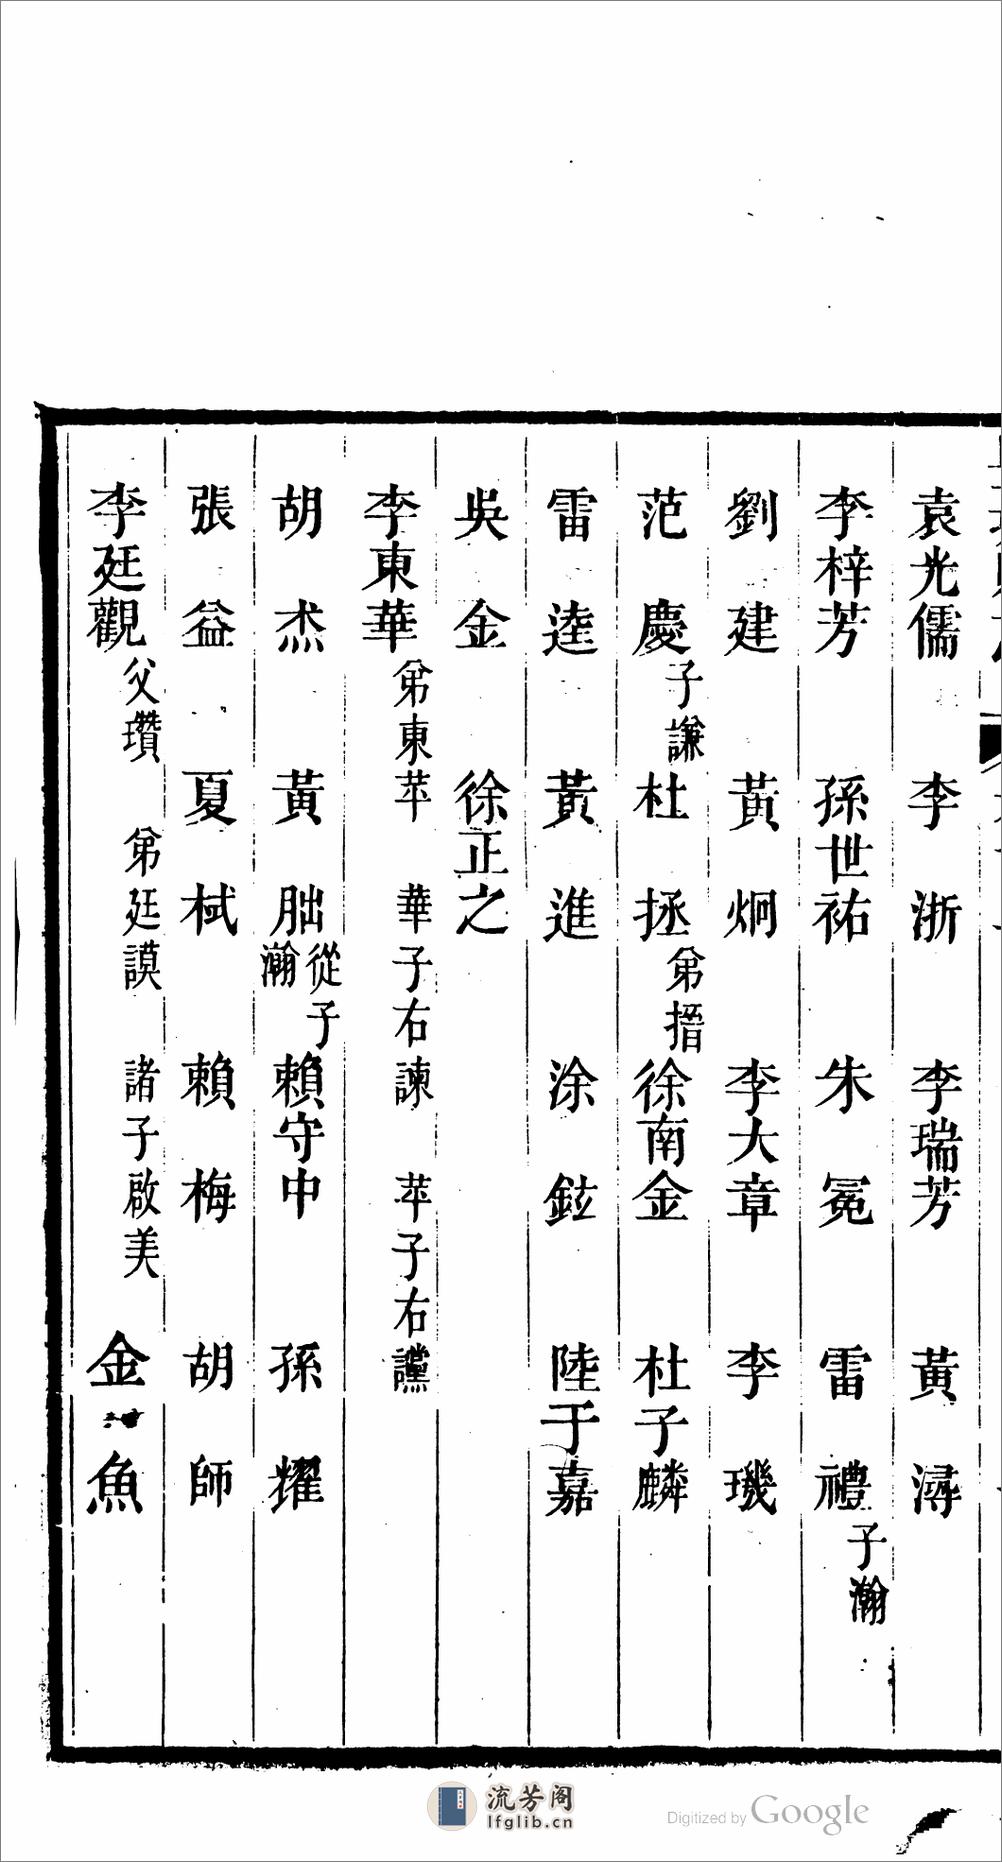 袁光儒　李浙　李瑞芳　黃潯
李梓芳　孫世祐　朱冕　雷禮　子瀚
劉建　黃炯　李大章　李璣
范慶　子謙　杜拯　弟搢　徐南金　杜子麟
雷逵　黃進　涂鉉　陸于嘉
吳金　徐正之
李東華　弟東苹　華子右諫　苹子右讜
胡杰　黃朏　從子瀚　賴守中　孫耀
張益　夏栻　賴梅　胡師
李廷觀　父瓚　弟廷謨　諸子啟美　金魚
流芳阁
lfglib.cn
Digitized by Google